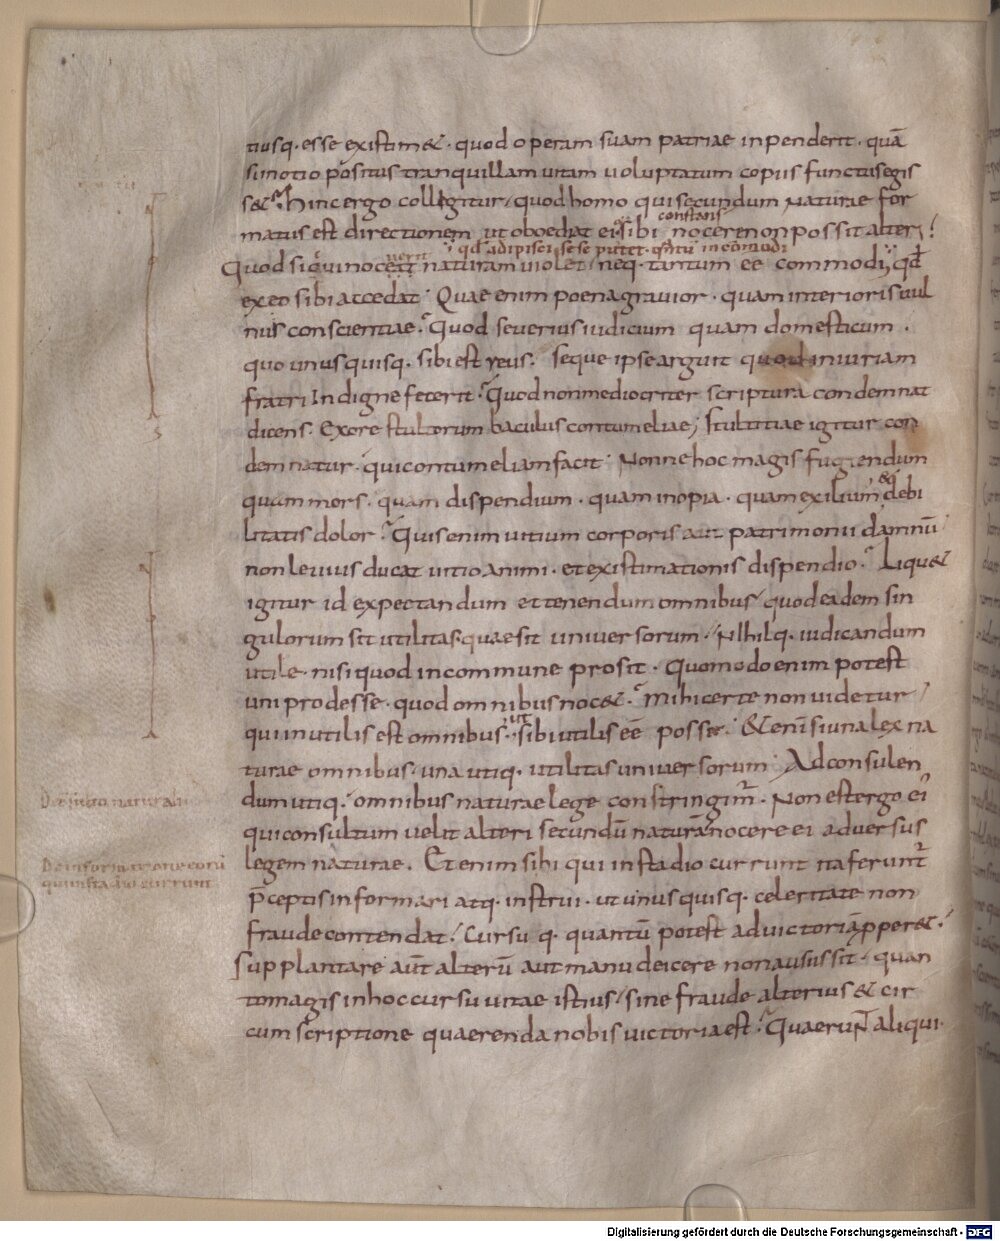 tiusq· esse existim&· quod operam suam patriae inpenderit· quā
si inotio positus tranquillam uitam uoluptatum copiis functusegis
s&· hincergo collegitur quodhomo qui secundum naturae for
constans
matus est directionem ut oboediat ei sibi nocerenonpossit alteri
qđ adipisci sese putet· quantū incōmodi
Quod siquinocet naturam uiolet neq· tantum eē commodi qđ
exeo sibi accedat Quae enim poena grauior· quam interioris uul
nus conscientiae· Quod seuerius iudicium quam domesticum·
quo unusquisq· sibi est reus· seque ipse arguit quod iniuriam
fratri Indigne fecerit· Quod nonmediocriter scriptura condemnat
dicens· Exore stultorum baculus contumeliae; stultitiae igitur con
demnatur· qui contumeliam facit· Nonne hoc magis fugiendum
quam mors· quam dispendium· quam inopia· quam exilium debi
litatis dolor· Quis enim uitium corporis aut patrimonii damnū
non leuius ducat uitio animi· et existimationis dispendio· Lique&
igitur id expectandum et tenendum omnibus quod eadem sin
gulorum sit utilitas· quae sit uniuersorum· Nihilq· iudicandum
utile· nisi quod incommune prosit· Quomodo enim potest
uni prodesse· quod omnibus noc&· Mihi certe non uidetur
ut
qui inutilis est omnibus· sibi utilis eē posse· & enī si una lex na
turae omnibus· una utiq· utilitas uniuersorum Ad consulen
De iustitia naturali
dum utiq· omnibus naturae lege constringimr· Non est ergo ei
qui consultum uelit alteri secundū naturā nocere ei aduersus
De informatione eorū
legem naturae· Etenim sihi qui instadio currunt na feruntr
qui in stadio currunt
p̄ceptis informari atq· instrui· ut unusquisq· celeritate non
fraude contendat· Cursu q· quantū potest ad uictoriā pper&·
supplantare aut alterū aut manu deicere non ausus sit· quan
tomagis in hoc cursu uitae istius sine fraude alterius & cir
cum scriptione quaerenda nobis uictoria est· Quaerunt aliqui·
Digitalisierung gefördert durch die Deutsche Forschungsgemeinschaft - DFG